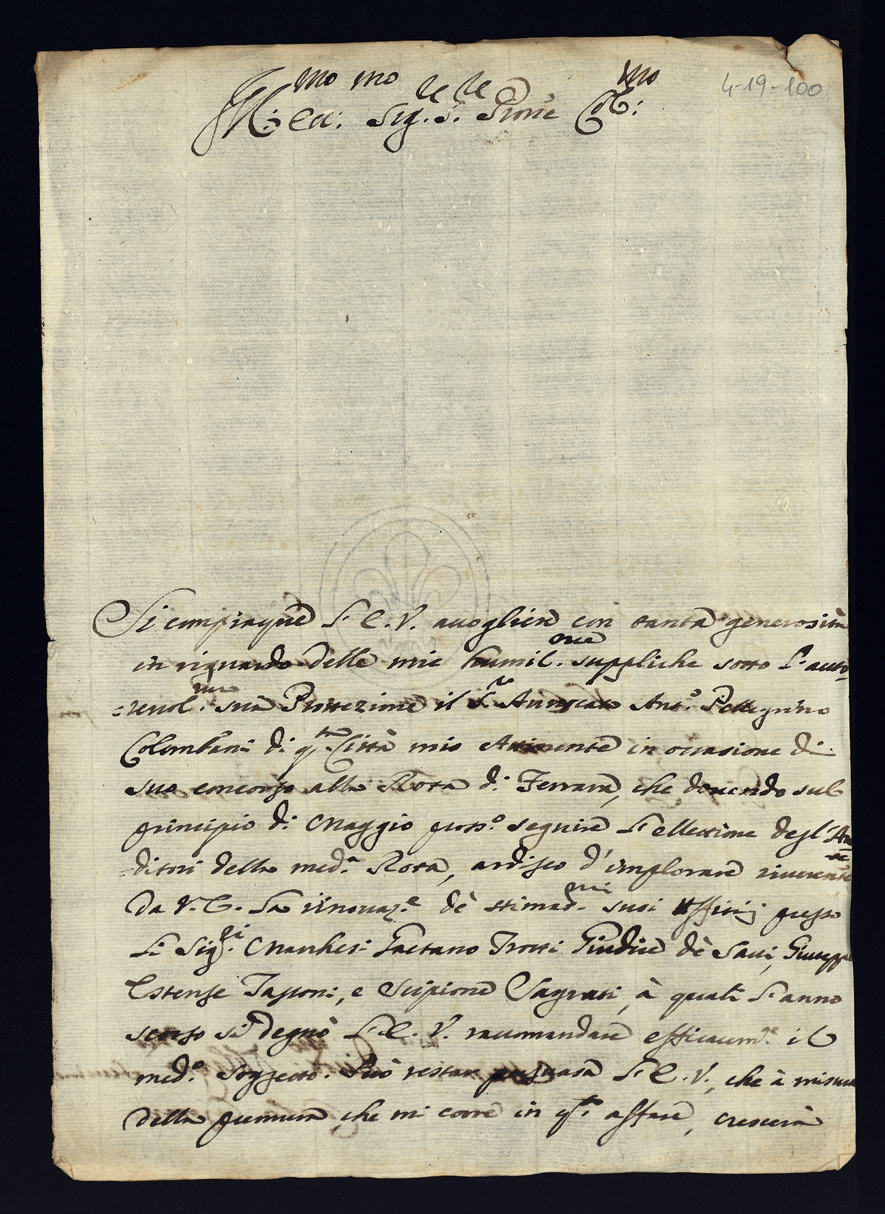 4-19-100
Ill.mo ed Ecc.mo Sig.re S.re Prone Col.mo
Si compiaque L'E. V. accogliere con tanta generosità
in riguardo delle mie humil.me suppliche sotto l'auto=
=revol.me sua Protezione il S.r Avvocato Ant.o Pellegrino
Colombani di q.ta Città mio Attinente in occasione di
suo concorso alla Rota di Ferrara, che dovendo sul
principio di Maggio pross.o seguire l'ellezione degl'Au=
=ditori della med.a Rota, ardisco d'implorare riverente
da V. E. la rinovaz.e de stimad.mi suoi Uffitij presso
li Sig.ri Marchesi Gaetano Trotti Giudice de Savi, Giuseppe
Estense Tassoni, e Scipione Sagrati, à quali l'anno
scorso si degnò L'E. V. raccomandare efficacem.te il
med.o Soggetto. Può restar persuasa L'E. V., che à misura
della premura che mi corre in q.to affare, crescerà